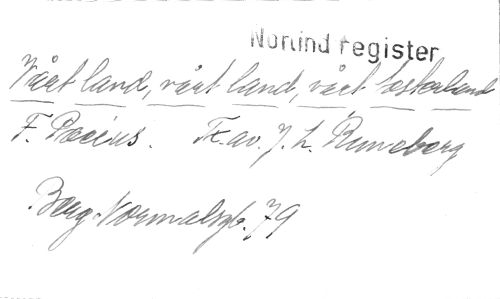 Norlind register
Vårt land, vårt land, vårt fosterland
F. Pacius. Tx. av. J. L. Runeberg
Berg Normalsgb. 79